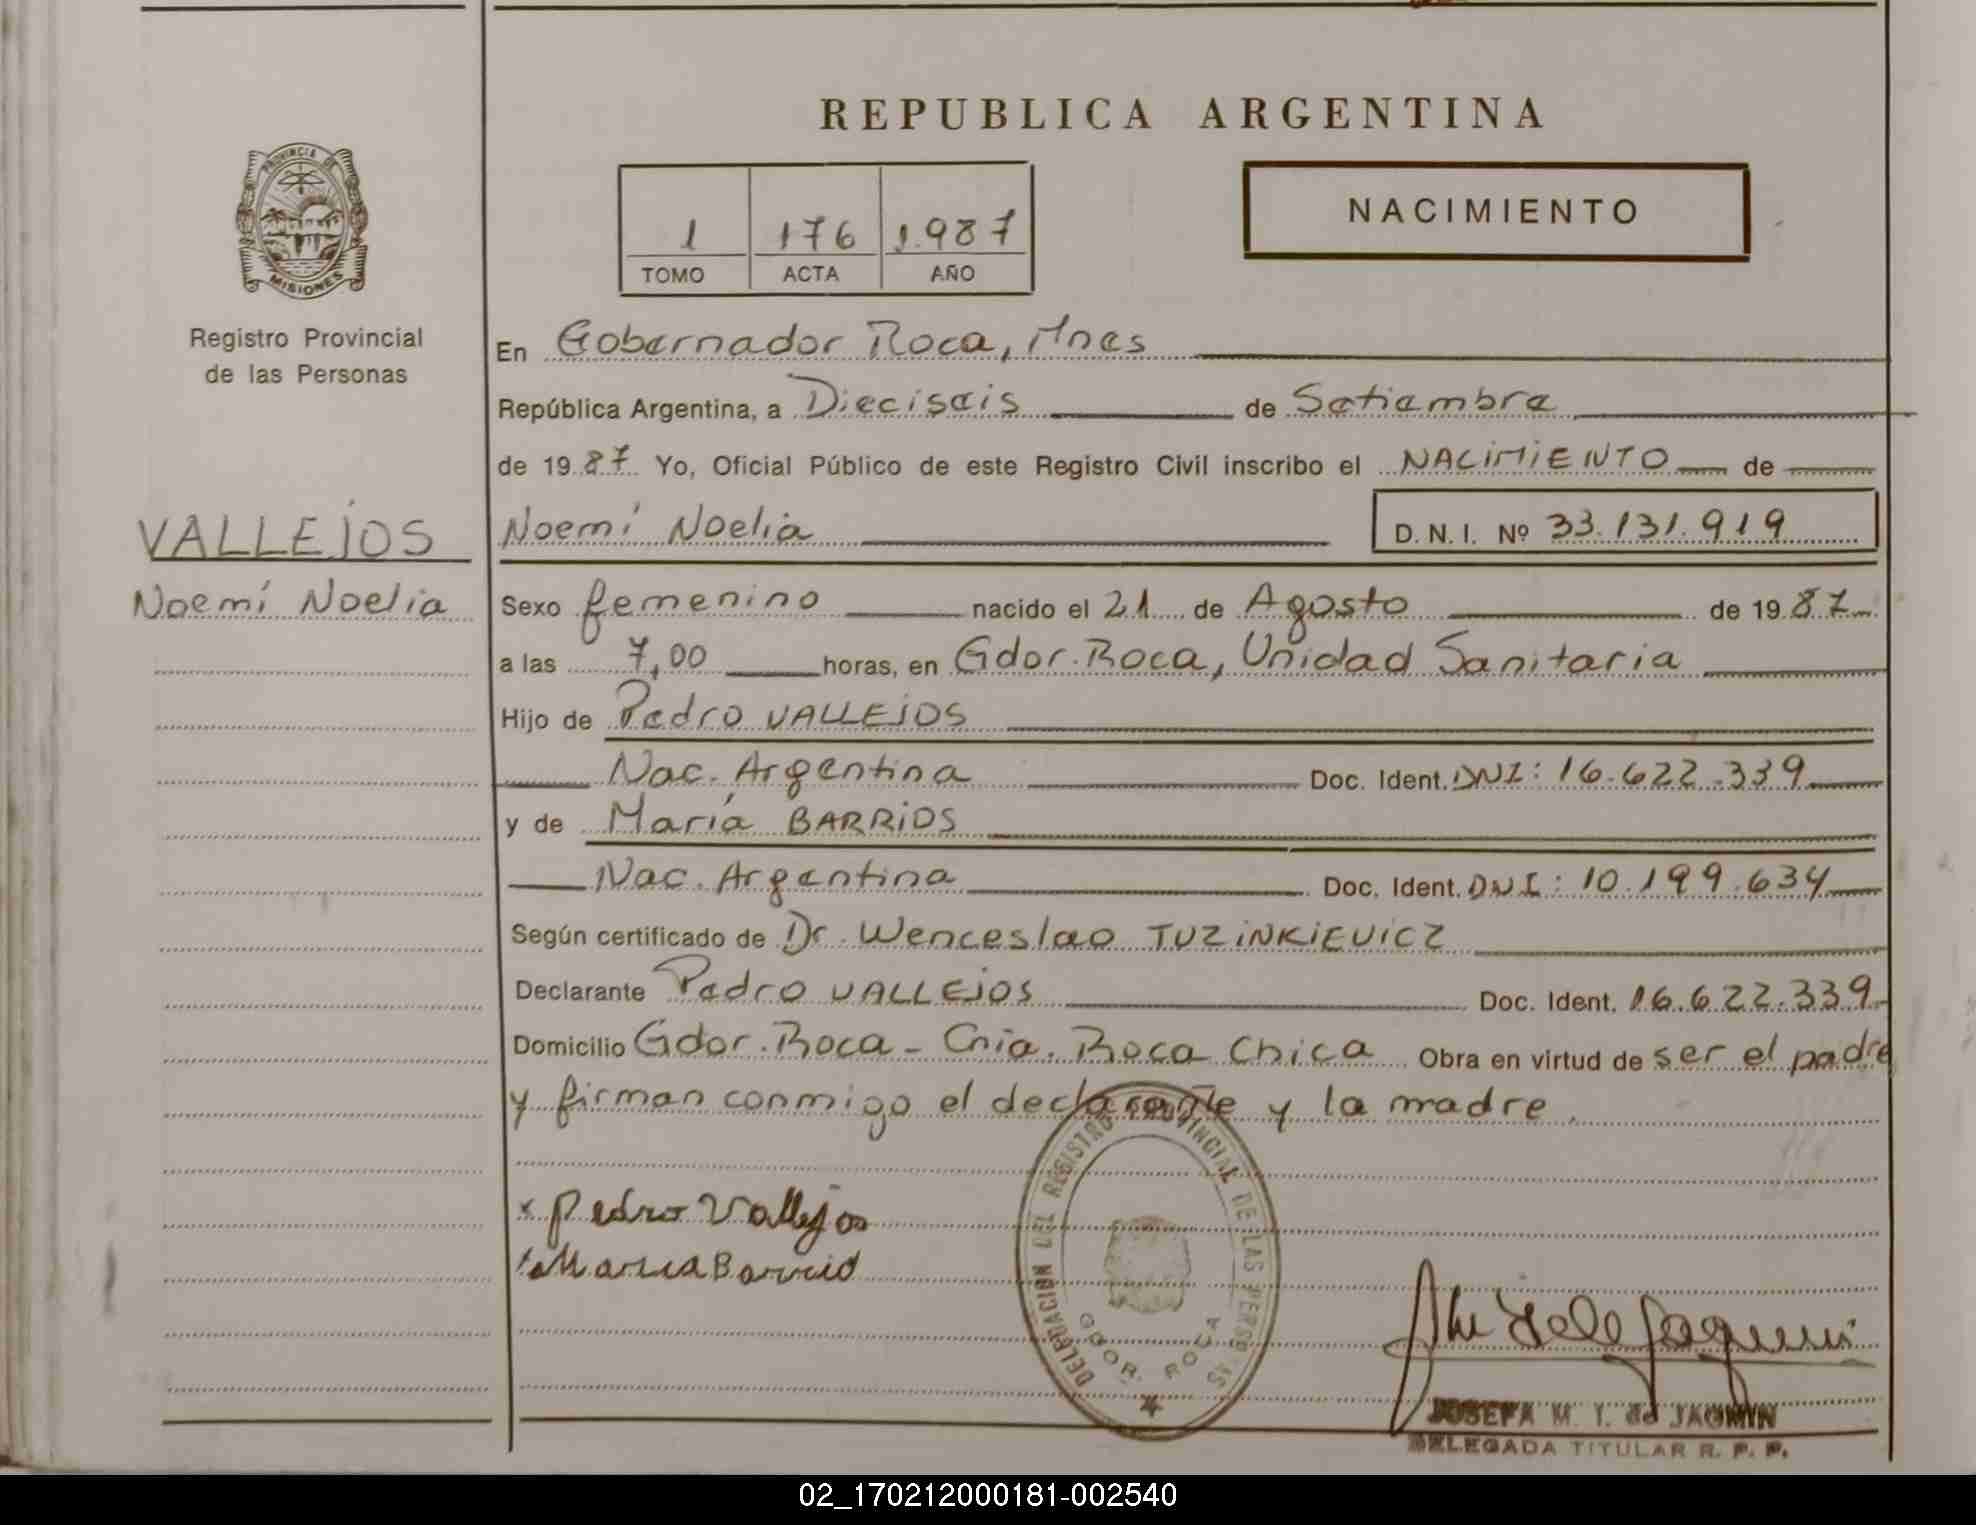 REPUBLICA ARGENTINA
PROVINCIA DE
MISIONES
Registro Provincial
de las Personas
VALLEJOS
Noemí Noelia
1 176 1.987
TOMO ACTA AÑO
NACIMIENTO
En Gobernador Roca, Mnes
República Argentina, a Dieciseis de Setiembre
de 1987 Yo, Oficial Público de este Registro Civil inscribo el NACIMIENTO de
Noemí Noelia D. N. I. Nº 33.131.919
Sexo femenino nacido el 21 de Agosto de 1987
a las 7,00 horas, en Gdor. Roca, Unidad Sanitaria
Hijo de Pedro VALLEJOS
Nac. Argentina Doc. Ident. DNI: 16.622.339
y de María BARRIOS
Nac. Argentina Doc. Ident. DNI: 10.199.634
Según certificado de Dr. Wenceslao TUZINKIEVICZ
Declarante Pedro VALLEJOS Doc. Ident. 16.622.339
Domicilio Gdor. Roca - Cnia. Roca Chica Obra en virtud de ser el padre
y firman conmigo el declarante y la madre.
x Pedro Vallejos
Maria Barrio
DELEGACION DEL REGISTRO PROVINCIAL DE LAS PERSONAS
GDOR. ROCA
JOSEFA M. Y. de JAQMIN
DELEGADA TITULAR R. P. P.
02_170212000181-002540